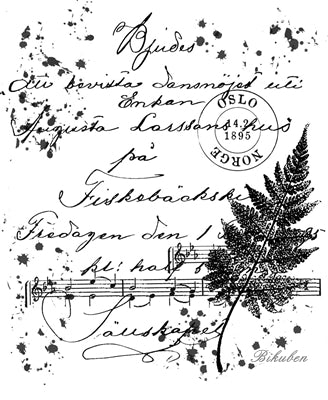 Bjudes
att bevista dansnöjet uti
Enkan
OSLO
1895
NORGE
Augusta Larssons hus
på
Fiskebäckski
Fredagen den 1
kl: half
Sällskapet
Bikuben